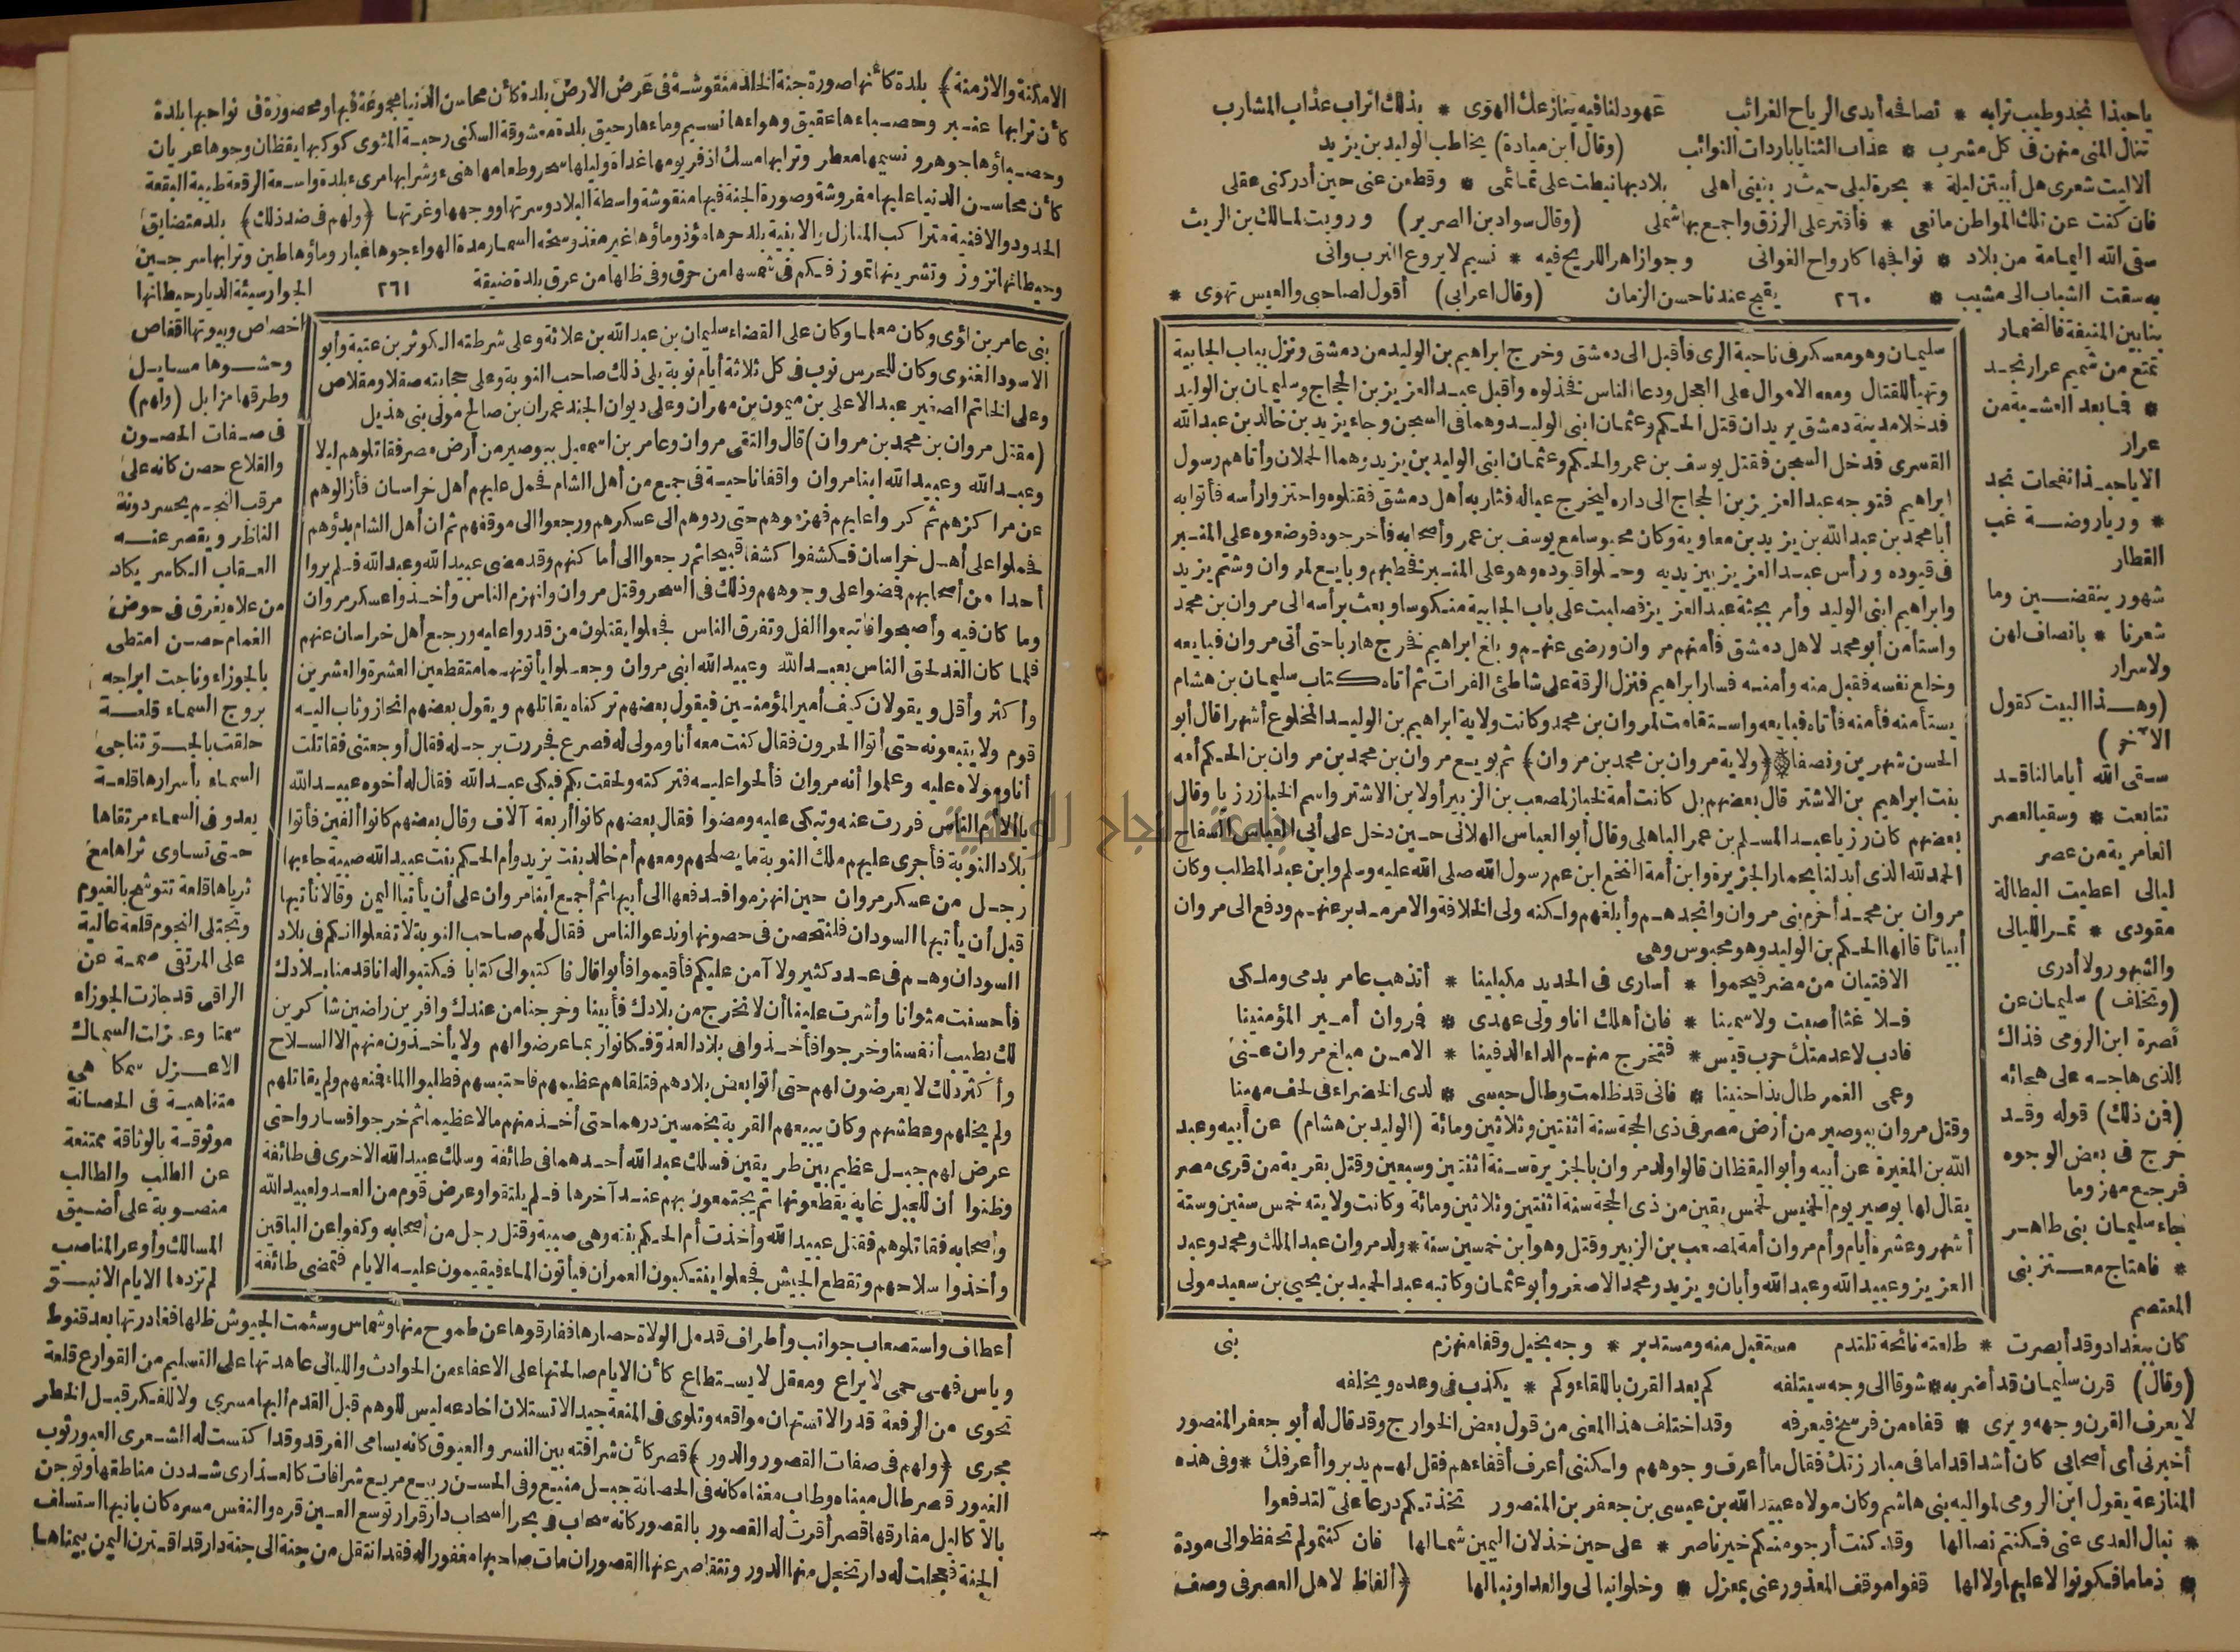 ياحبذا نجد وطيب ترابه * تصافحه أيدى الرياح الغرائب عهود لنا فيه ينازعك الهوى * بذلك اتراب عذاب المشارب
تنال المنى منهن فى كل مشرب * عذاب الثنايا باردات النوائب (وقال ابن ميادة) يخاطب الوليد بن يزيد
ألا ليت شعرى هل أبيتن ليلة * بحرة ليلى حيث ربتنى أهلى بلاد بها نيطت على تمائمى * وقطعن عنى حين أدركنى عقلى
فان كنت عن تلك المواطن مانعى * فأفتر على الرزق واجمع بها شملى (وقال سواد بن الصرير) ورويت لمالك بن الريث
سقى الله اليمامة من بلاد * نوافحها كارواح الغوانى وجوازاهر للريح فيه * نسيم لا يروع الترب وانى
به سقت الشباب الى مشيب * ٢٦٠ يقبح عندنا حسن الزمان (وقال اعرابى) أقول لصاحبى والعيس تهوى *
بنا بين المنيفة فالضمار
تمتع من شميم عرار نجد
* فما بعد العشية من
عرار
الا ياحبذا نفحات نجد
* وريا روضة غب
القطار
شهور ينقضين وما
شعرنا * بانصاف لهن
ولا سرار
(وهذا البيت كقول
الآخر)
سقى الله أياما لنا قد
تتابعت * وسقيا لعصر
العامرية من عصر
ليالى اعطيت البطالة
مقودى * تمر الليالى
والشهور ولا أدرى
(وتخلف) سليمان عن
نصرة ابن الرومى فذاك
الذى هاجه على هجائه
(فمن ذلك) قوله وقد
خرج فى بعض الوجوه
فرجع مهزوما
جاء سليمان بنى طاهر
* فاهتاج معتز بنى
المعتصم
سليمان وهو معسكر فى ناحية الرى فأقبل الى دمشق وخرج ابراهيم بن الوليد من دمشق ونزل بباب الجابية
وتهيأ للقتال ومعه الاموال على العجل ودعا الناس فخذلوه وأقبل عبد العزيز بن الحجاج وسليمان بن الوليد
فدخلا مدينة دمشق يريدان قتل الحكم وعثمان ابنى الوليد وهما فى السجن وجاء يزيد بن خالد بن عبد الله
القسرى فدخل السجن فقتل يوسف بن عمر والحكم وعثمان ابنى الوليد بن يزيد وهما الحملان وأتاهم رسول
ابراهيم فتوجه عبد العزيز بن الحجاج الى داره ليخرج عياله فثار به أهل دمشق فقتلوه واحتزوا رأسه فأتوا به
أبا محمد بن عبد الله بن يزيد بن معاوية وكان محبوسا مع يوسف بن عمر وأصحابه فأخرجوه فوضعوه على المنبر
فى قيوده ورأس عبد العزيز بين يديه وحلوا قيوده وهو على المنبر فخطبهم وبايع لمروان وشتم يزيد
وابراهيم ابنى الوليد وأمر بجثة عبد العزيز فصلبت على باب الجابية منكوسا وبعث برأسه الى مروان بن محمد
واستأمن أبو محمد لاهل دمشق فأمنهم مروان ورضى عنهم وبلغ ابراهيم فخرج هاربا حتى أتى مروان فبايعه
وخلع نفسه فقبل منه وأمنه فسار ابراهيم فنزل الرقة على شاطئ الفرات ثم أتاه كتاب سليمان بن هشام
يستأمنه فأمنه فأتاه فبايعه واستقامت لمروان بن محمد وكانت ولاية ابراهيم بن الوليد المخلوع أشهرا قال أبو
الحسن شهرين ونصفا ﴿ولاية مروان بن محمد بن مروان﴾ ثم بويع مروان بن محمد بن مروان بن الحكم أمه
بنت ابراهيم بن الاشتر قال بعضهم بل كانت أمة لخباز لمصعب بن الزبير أو لابن الاشتر واسم الخباز رزيا وقال
بعضهم كان رزيا عبد المسلم بن عمر الباهلى وقال أبو العباس الهلالى حين دخل على أبى العباس السفاح
الحمد لله الذى أبدلنا بحمار الجزيرة وابن أمة النخع ابن عم رسول الله صلى الله عليه وسلم وابن عبد المطلب وكان
مروان بن محمد أخزم بنى مروان وانجدهم وأبلغهم ولكنه ولى الخلافة والامر مدبر عنهم ودفع الى مروان
أبياتا قالها الحكم بن الوليد وهو محبوس وهى
الافتيان من مضر فيحموا * أسارى فى الحديد مكبلينا * أتذهب عامر بدمى وملكى
فلا غثا أصبت ولا سمينا * فان أهلك انا وولى عهدى * فمروان أمير المؤمنينا
فادب لا عدمتك حرب قيس * فتخرج منهم الداء الدفينا * الا من مبلغ مروان عنى
وعمى الغمر طال بذا حنينا * فانى قد ظلمت وطال حبسى * لدى الخضراء فى لحف مهينا
وقتل مروان ببوصير من أرض مصر فى ذى الحجة سنة اثنتين وثلاثين ومائة (الوليد بن هشام) عن أبيه وعبد
الله بن المغيرة عن أبيه وأبو اليقظان قالوا ولد مروان بالجزيرة سنة اثنتين وسبعين وقتل بقرية من قرى مصر
يقال لها بوصير يوم الخميس لخمس بقين من ذى الحجة سنة اثنتين وثلاثين ومائة وكانت ولايته خمس سنين وستة
أشهر وعشرة أيام وأم مروان أمة لمصعب بن الزبير وقتل وهو ابن خمسين سنة * ولد مروان عبد الملك ومحمد وعبد
العزيز وعبيد الله وعبد الله وأبان ويزيد ومحمد الاصغر وأبو عثمان وكاتبه عبد الحميد بن يحيى بن سعيد مولى
بنى
كان ببغداد وقد أبصرت * طلعته نائحة تلتدم مستقبل منه ومستدبر * وجه بخيل وقفا منهزم
(وقال) قرن سليمان قد أضر به * شوقا الى وجه سيتلفه كم يعد القرن باللقاء وكم * يكذب فى وعده ويخلفه
لا يعرف القرن وجهه ويرى * قفاه من فرسخ فيعرفه وقد اختلف هذا المعنى من قول بعض الخوارج وقد قال له أبو جعفر المنصور
أخبرنى أى أصحابى كان أشد اقداما فى مبارزتك فقال ما أعرف وجوههم ولكننى أعرف أقفاءهم فقل لهم يدبروا أعرفك * وفى هذه
المنازعة يقول ابن الرومى لمواليه بنى هاشم وكان مولاه عبيد الله بن عيسى بن جعفر بن المنصور تخذتكم درعا علىّ لتدفعوا
* نبال العدى عنى فكنتم نصالها وقد كنت أرجو منكم خير ناصر * على حين خذلان اليمين شمالها فان كنتمو لم تحفظوا لى مودة
* ذماما فكونوا لا عليها ولا لها قفوا موقف المعذور عنى بمعزل * وخلوا نبالى والعدا ونبالها ﴿ألفاظ لاهل العصر فى وصف
الامكنة والازمنة﴾ بلدة كأنها صورة جنة الخلد منقوشة فى عرض الارض بلدة كأن محاسن الدنيا مجموعة فيها ومحصورة فى نواحيها بلدة
كأن ترابها عنبر وحصباءها عقيق وهواءها نسيم وماءها رحيق بلدة معشوقة السكنى رحبة المثوى كوكبها يقظان وجوها عريان
وحصباؤها جوهر ونسيمها معطر وترابها مسك اذفر يومها غداة وليلها سحر وطعامها هنىء وشرابها مرىء بلدة واسعة الرقعة طيبة البقعة
كأن محاسن الدنيا عليها مفروشة وصورة الجنة فيها منقوشة واسطة البلاد وسرتها ووجهها وغرتها ﴿ولهم فى ضد ذلك﴾ بلد متضايق
الحدود والافنية متراكب المنازل والابنية بلد حرها مؤذ وماؤها غير مغذ وسخة السماء رمدة الهواء جوها غبار وماؤها طين وترابها سرجين
وحيطانها نزوز وتشرينها تموز فكم فى شمسها من حرق وفى ظلها من عرق بلدة ضيقة ٢٦١ الجوار سيئة الديار حيطانها
اخصاص وبيوتها اقفاص
وحشوها مسايل
وطرقها مزابل (ولهم)
فى صفات الحصون
والقلاع حصن كانه على
مرقب النجم يحسر دونه
الناظر ويقصر عنه
العقاب الكاسر يكاد
من علاه يغرق فى حوض
الغمام حصن امتطى
بالجوزاء وناجت ابراجه
بروج السماء قلعة
حلقت بالجو تناجى
السماء بأسرارها قلعة
يعدو فى السماء مرتقاها
حتى تساوى ثراها مع
ثرياها قلعة تتوشح بالغيوم
وتجتلى النجوم قلعة عالية
على المرتقى صمة عن
الراقى قد جازت الجوزاء
سمتا وعزلت السماك
الاعزل سمكا هى
متناهية فى الحصانة
موثوقة بالوثاقة ممتنعة
عن الطلب والطالب
منصوبة على أضيق
المسالك وأوعر المناصب
لم تزدها الايام الا نبو
بنى عامر بن لؤى وكان معلما وكان على القضاء سليمان بن عبد الله بن علاثة وعلى شرطته الكوثر بن عتبة وأبو
الاسود الغنوى وكان للحرس نوب فى كل ثلاثة أيام نوبة يلى ذلك صاحب النوبة وعلى حجابته صقلا ومقلاص
وعلى الخاتم الصغير عبد الاعلى بن ميمون بن مهران وعلى ديوان الجند عمران بن صالح مولى بنى هذيل
(مقتل مروان بن محمد بن مروان) قال والتقى مروان وعامر بن اسمعيل ببوصير من أرض مصر فقاتلوهم ليلا
وعبد الله وعبيد الله ابنا مروان واقفان ناحية فى جمع من أهل الشام فحمل عليهم أهل خراسان فأزالوهم
عن مراكزهم ثم كروا عليهم فهزموهم حتى ردوهم الى عسكرهم ورجعوا الى موقفهم ثم ان أهل الشام بدؤهم
فحملوا على أهل خراسان فكشفوا كشفا قبيحا ثم رجعوا الى أماكنهم وقد مضى عبيد الله وعبد الله فلم يروا
أحدا من أصحابهم فمضوا على وجوههم وذلك فى السحر وقتل مروان وانهزم الناس وأخذوا عسكر مروان
وما كان فيه وأصبحوا فاتبعوا الفل وتفرق الناس فجعلوا يقتلون من قدروا عليه ورجع أهل خراسان عنهم
فلما كان الغد لحق الناس بعبد الله وعبيد الله ابنى مروان وجعلوا يأتونهما متقطعين العشرة والعشرين
وأكثر وأقل ويقولان كيف أمير المؤمنين فيقول بعضهم تركناه يقاتلهم ويقول بعضهم انحاز وثاب اليه
قوم ولا يتبعونه حتى أتوا الحرون فقال كنت معه أنا ومولى له فصرع فجررت برجله فقال أوجعتنى فقاتلت
أنا ومولاه عليه وعلموا أنه مروان فألحوا عليه فتركته ولحقت بكم فبكى عبد الله فقال له أخوه عبيد الله
يا ألأم الناس فررت عنه وتبكى عليه ومضوا فقال بعضهم كانوا أربعة آلاف وقال بعضهم كانوا ألفين فأتوا
بلاد النوبة فأجرى عليهم ملك النوبة ما يصلحهم ومعهم أم خالد بنت يزيد وأم الحكم بنت عبيد الله صبية جاء بها
رجل من عسكر مروان حين انهزموا فدفعها الى أبيها ثم أجمع ابنا مروان على أن يأتيا اليمن وقالا نأتيها
قبل أن يأتيها السودان فلنتحصن فى حصونها وندعو الناس فقال لهم صاحب النوبة لا تفعلوا انكم فى بلاد
السودان وهم فى عدد كثير ولا آمن عليكم فأقيموا فأبوا قال فاكتبوا لى كتابا فكتبوا له انا قدمنا بلادك
فأحسنت مثوانا وأشرت علينا أن لا نخرج من بلادك فأبينا وخرجنا من عندك وافرين راضين شاكرين
لك بطيب أنفسنا وخرجوا فأخذوا فى بلاد العدو فكانوا ربما عرضوا لهم ولا يأخذون منهم الا السلاح
وأكثر ذلك لا يعرضون لهم حتى أتوا بعض بلادهم فتلقاهم عظيمهم فاحتبسهم فطلبوا الماء فمنعهم ولم يقاتلهم
ولم يخلهم وعطشهم وكان يبيعهم القربة بخمسين درهما حتى أخذ منهم مالا عظيما ثم خرجوا فساروا حتى
عرض لهم جبل عظيم بين طريقين فسلك عبد الله أحدهما فى طائفة وسلك عبيد الله الاخرى فى طائفة
وظنوا أن للجبل غاية يقطعونها ثم يجتمعون بهم عند آخرها فلم يلتقوا وعرض قوم من العدو لعبيد الله
وأصحابه فقاتلوهم فقتل عبيد الله وأخذت أم الحكم بنته وهى صبية وقتل رجل من أصحابه وكفوا عن الباقين
وأخذوا سلاحهم وتقطع الجيش فجعلوا يتنكبون العمران فيأتون الماء فيقيمون عليه الايام فتمضى طائفة
أعطاف واستصعاب جوانب وأطراف قد مل الولاة حصارها ففارقوها عن طموح منها وشماس وسئمت الجيوش ظلها فغادرتها بعد قنوط
وياس فهى حمى لا يراع ومعقل لا يستطاع كأن الايام صالحتها على الاعفاء من الحوادث والليالى عاهدتها على التسليم من القوارع قلعة
تحوى من الرفعة قدرا لا تستهان مواقعه وتلوى فى المنعة جيدا لا تستلان اخادعه ليس للوهم قبل القدم اليها مسرى ولا للفكر قبل الخطر
مجرى ﴿ولهم فى صفات القصور والدور﴾ قصر كأن شرافته بين النسر والعيوق كانه يسامى الفرقد وقد اكتست له الشعرى العبور ثوب
الغيور قصر طال مبناه وطاب مغناه كانه فى الحصانة جبل منيع وفى الحسن ربيع مريع شرافات كالعذارى شددن مناطقها وتوجن
بالاكاليل مفارقها قصر أقرت له القصور بالقصور كانه سحاب فى بحر السحاب دار قرار توسع العين قره والنفس مسره كان بانيها استسلف
الجنة فعجلت له دار تخجل منها الدور وتتقاصر عنها القصور ان مات صاحبها مغفورا له فقد انتقل من جنة الى جنة دار قد اقترن اليمن بيمناها